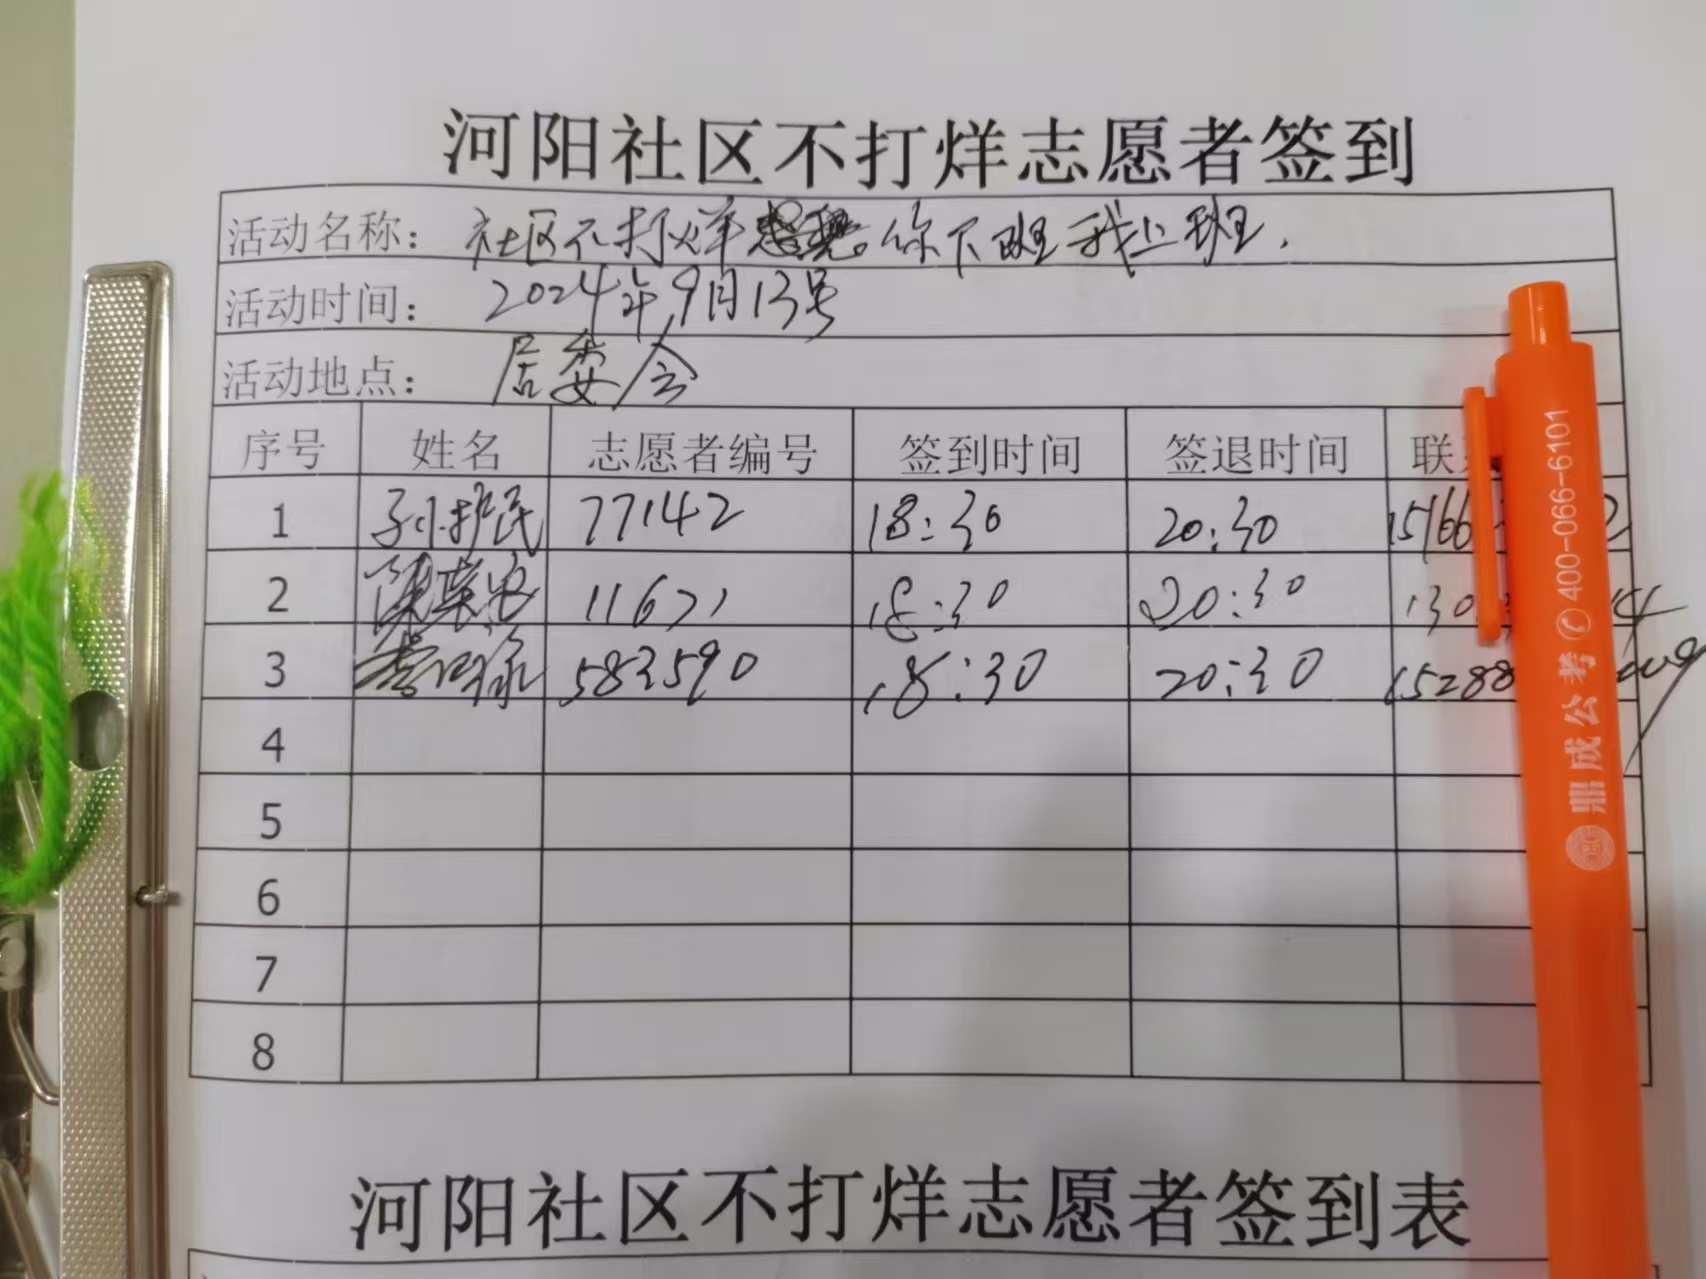 河阳社区不打烊志愿者签到
活动名称: 社区不打烊 你下班我上班.
活动时间: 2024年9月13号
活动地点: 居委会
序号 姓名 志愿者编号 签到时间 签退时间 联
1 孙护民 77142 18:30 20:30 15166 2
2 11671 18:30 20:30 130
3 583590 18:30 20:30 15288
4
5
6
7
8
河阳社区不打烊志愿者签到表
鼎成公考 400-066-6101